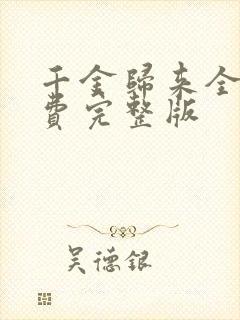 千金歸来全
費完整版
吴德銀